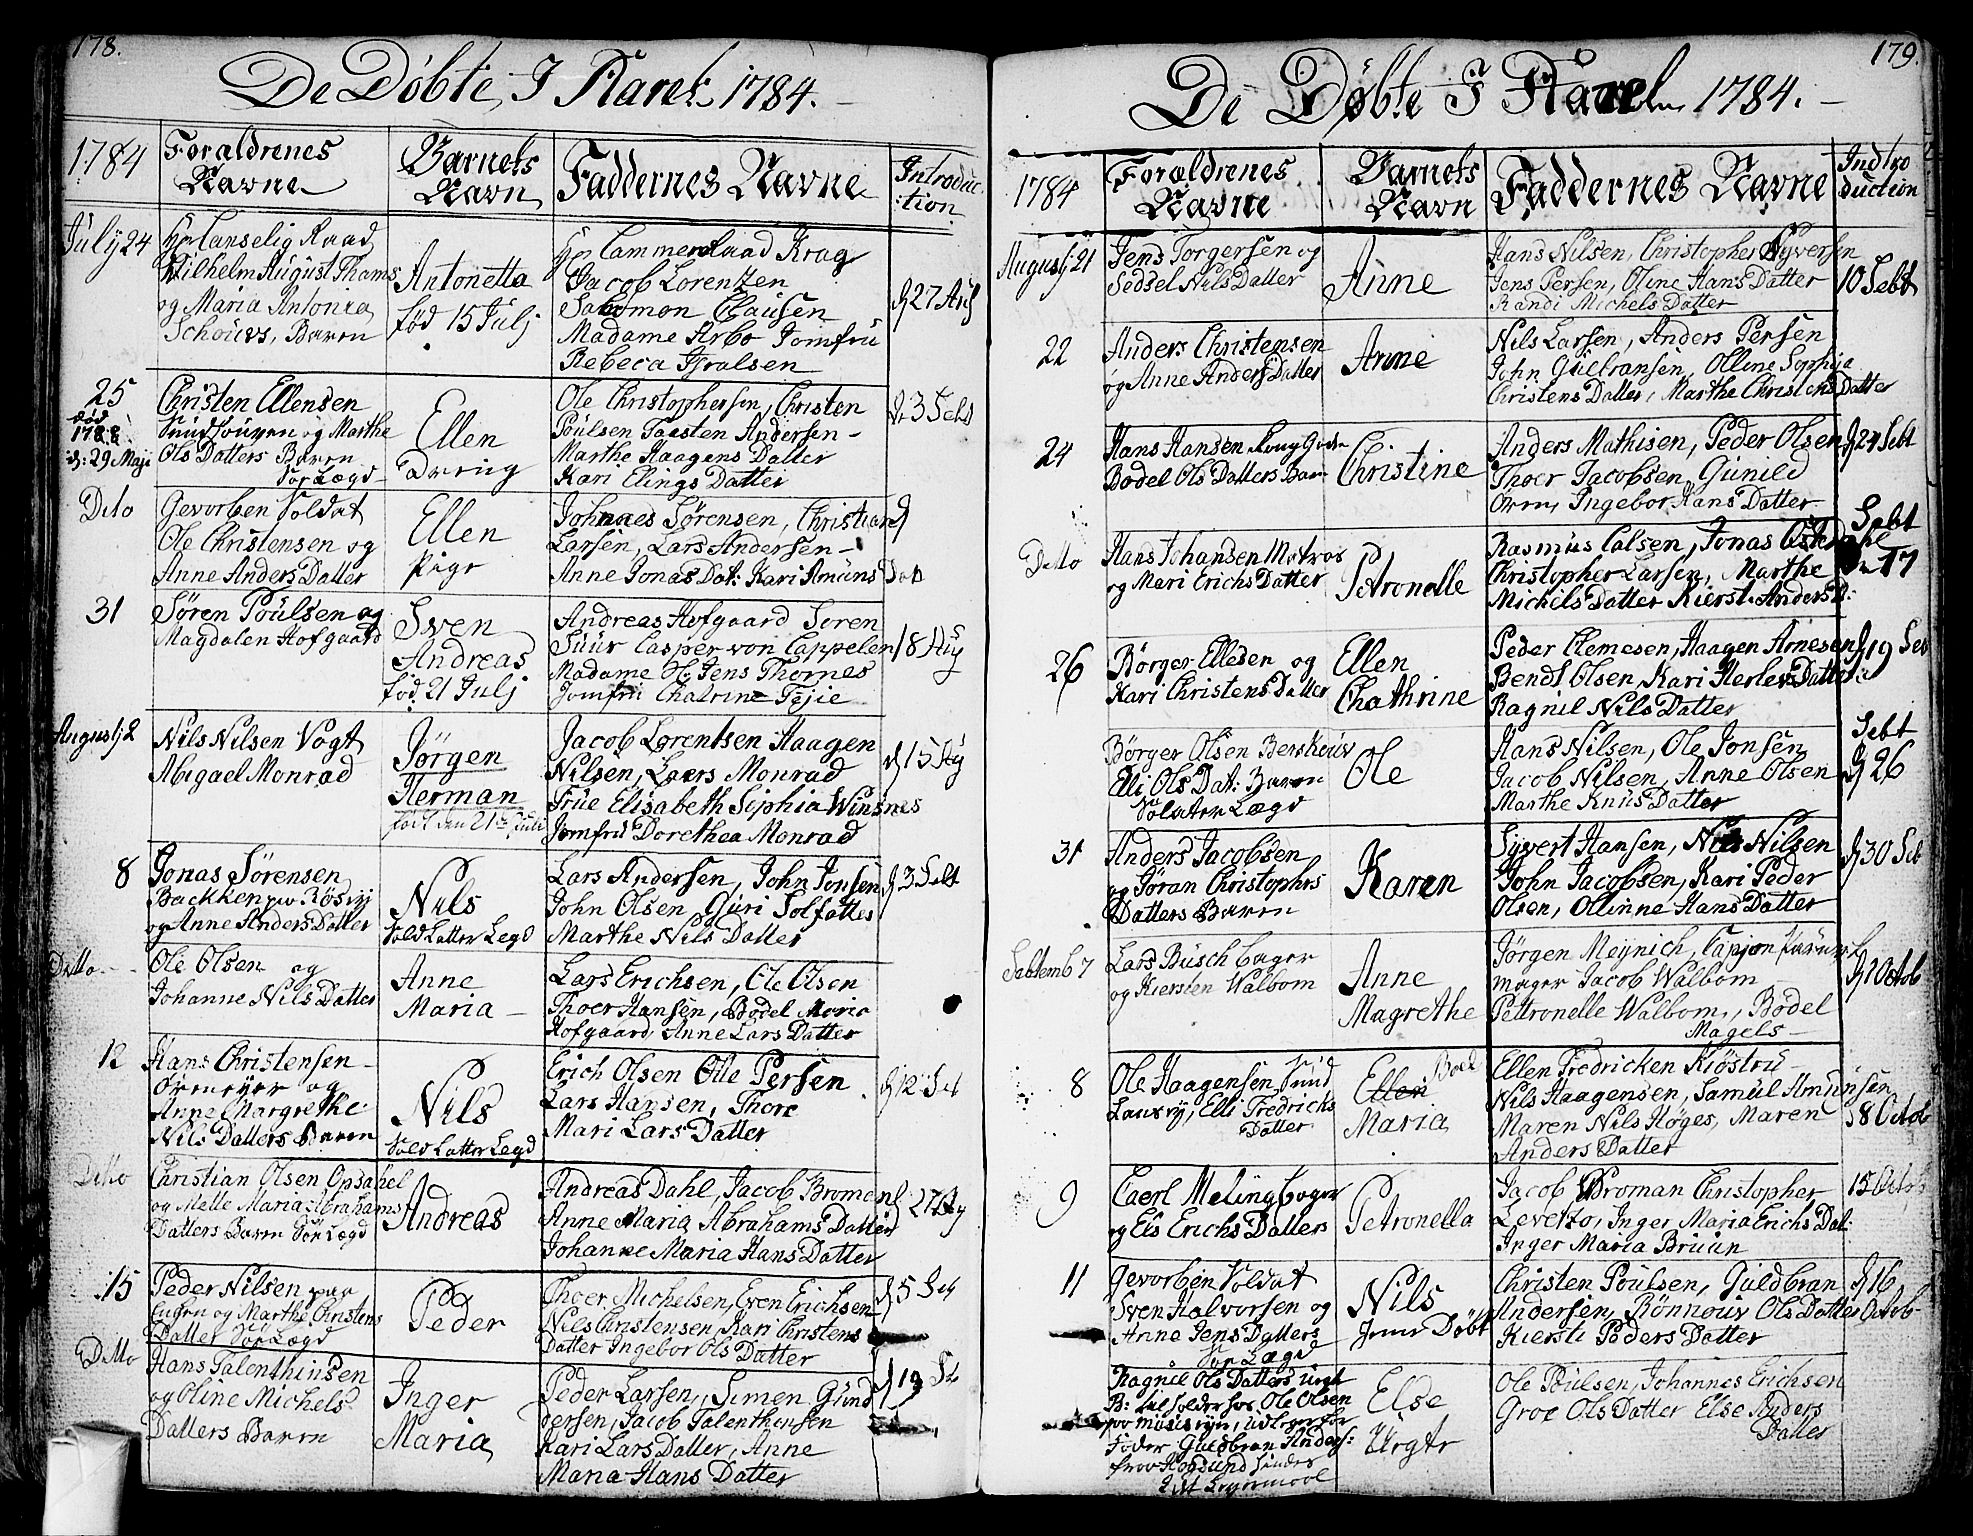 178.
De Døbte I Aaret 1784.
1784
Foraldrenes Navne
Barnets Navn
Faddernes Navne
Introduc:tion
July 24
Hr Canselig Raad
Wilhelm August Thams
og Maria Antonia
Schouvs, Barn
Antonetta
fød 15 Julj
Hr Cammerraad Krag
Jacob Lorentzen
Salomon Clausen
Madame Arbo Jomfru
Rebeca
d 27 Aug
25
Død
1788
d: 29 Maji
Christen Ellensen
og Marthe
Ols Datters Barn
Sør Lægd
Ellen
Dreng
Ole Christophersen, Christen
Poulsen Taasten Andersen
Marthe Haagens Datter
Kari Elings Datter
d. 3 Sebt
Ditto
Gevorben Soldat
Ole Christensen og
Anne Anders Datter
Ellen
Pige
Johnaes Sørensen, Christian
Larsen, Lars Andersen
Anne Jonas Dat: Kari Amuns Dat
31
Søren Poulsen og
Magdalen Hofgaard
Sven
Andreas
fød 21 Julj
Andreas Hofgaard Soren
Suur Casper von Cappelen
Madame H Jens Thornes
Jomfru Chatrine Tejie
18 Aug
Augustj 2
Nils Nilsen Vogt
Abigael Monrad
Jørgen
Herman
født den 21de Juli
Jacob Lorentsen Haagen
Nilsen, Laers Monrad
Frue Elisabeth Sophia Winsnes
Jomfru Dorethea Monrad
d 15 Aug
8
Jonas Sørensen
Backken
og Anne Anders Datter
Nils
Sold Latter Legd
Lars Andersen, John Jonsen
John Olsen Guri Solfattes
Marthe Nils Datter
d 3 Sebt
Ditto
Ole Olsen og
Johanne Nils Datter
Anne
Maria
Lars Erichsen, Ole Olsen
Thoer Hansen, Bodel Maria
Hofgaard, Anne Lars Datter
12
Hans Christensen
og
Anne Margrethe
Nils Datters Barn
Nils
Sold Latter Legd
Erich Olsen Olle Persen
Lars Hansen, Thore
Mari Lars Datter
d 12 Sebt
Ditto
Christian Olsen Opsahel
og Mette Maria Abrahams
Datters Barn Sør Lægd
Andreas
Andreas Dahl, Jacob Broman
Anne Maria Abrahams Datter
Johanne Maria Hans Datter
d 27 Aug
15
Peder Nilsen paa
og Marthe Christens
Datter Sør Lægd
Peder
Thoer Michelsen, Even Erichsen
Nils Christensen, Kari Christens
Datter Ingebor Ols Datter
d 5 Sebt
Ditto
Hans Talenthinsen
og Oline Michels
Datters Barn
Inger
Maria
Peder Larsen, Simen Gund
dersen, Jacob Talenthinsen
Kari Lars Datter, Anne
Maria Hans Datter
d 19 Sebt
179.
De Døbte I Aaret 1784.
1784
Foraldrenes Navne
Barnets Navn
Faddernes Navne
Indtroduction
Augustj 21
Jens Torgersen og
Sedsel Nils Datter
Anne
Hans Nilsen, Christopher Syversen
Jens Persen, Oline Hans Datter
Randi Michels Datter
10 Sebt
22
Anders Christensen
og Anne Anders Datter
Anne
Nils Larsen, Anders Persen
John Gulbransen, Olline Sophia
Christens Datter, Marthe Christens Datter
24
Hans Hansen
Bodel Ols Datters Barn
Christine
Anders Mathisen, Peder Olsen
Thoer Jacobsen Gunild
Ingebor Hans Datter
d 24 Sebt
Ditto
Hans Johansen Matros
og Mari Erichs Datter
Petronelle
Rasmus Calsen, Jonas
Christopher Larsen, Marthe
Michels Datter Kiersti Anders D:
Sebt
17
26
Børger Ellesen og
Kari Christens Datter
Ellen
Chathrine
Peder Clemesen, Haagen Arnesen
Bendt Olsen, Kari Datter
Ragnil Nils Datter
d 19 Seb
Børger Olsen Berskouv
Elli Ols Dat: Barn
Solater Lægd
Ole
Hans Nilsen, Ole Jonsen
Jacob Nilsen, Anne Olsen
Marthe Knus Datter
Sebt
d 26
31
Anders Jacobsen
og Jøran Christophrs
Datters Barn
Karen
Syvert Hansen, Nils Nilsen
John Jacobsen, Kari Peder
Olsen, Ollinne Hans Datter
d 30 Seb
Sebtemb 7
Lars Busch bager
og Kiersten Walbom
Anne
Magrethe
Jørgen Meynich,
mager Jacob Walbom
Pettronelle Walbom, Bodel
Magels
d 1 Octob
8
Ole Haagensen Sund
Elli Fredrichs
Datter
Ellen Boel
Maria
Ellen Fredricken Kiøstru
Nils Haagensen, Samuel Amunsen
Maren Nils Høges, Maren
Anders Datter
8 Octob
9
Caerl Meling bager
og Els Erichs Datter
Petronella
Jacob Broman Christopher
Levetzo, Inger Maria Erichs Dat:
Inger Maria Bruun
15 Octob
11
Gevorben Soldat
Sven Halvorsen og
Anne Jens Datters
Sør Lægd
Nils
Døbt
Christen Poulsen, Guldbran
Andersen, Rønnouv Ols Datter
Kiersti Peders Datter
d 16
Octob
Ragnil Ols Datters uegt
B: Ole Olsen
Fader Guldbran Anders:
Else
Uegte
Ole Poulsen, Johannes Erichsen
Groe Ols Datter Else Anders
Datter